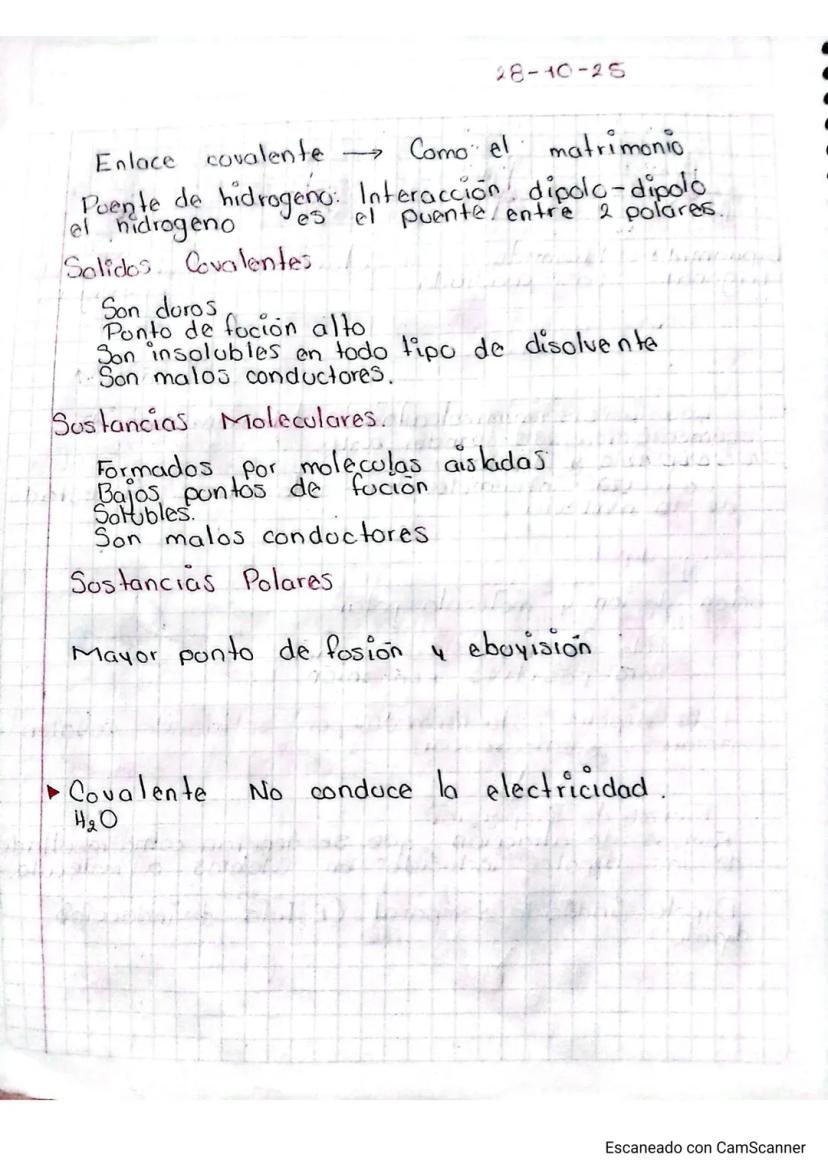 28-10-25
Enlace covalente → Como el matrimonio
Puente de hidrogeno: Interacción dipolo-dipolo
el hidrogeno es el puente entre 2 polares.
Solidos Covalentes
Son duros
Punto de fución alto
Son insolubles en todo tipo de disolvente
Son malos conductores.
Sustancias Moleculares.
Formados por moleculas aisladas
Bajos puntos de fución
Solubles.
Son malos conductores
Sustancias Polares
Mayor punto de fosión y eboyisión
▸ Covalente No conduce la electricidad.
H₂O
Escaneado con CamScanner